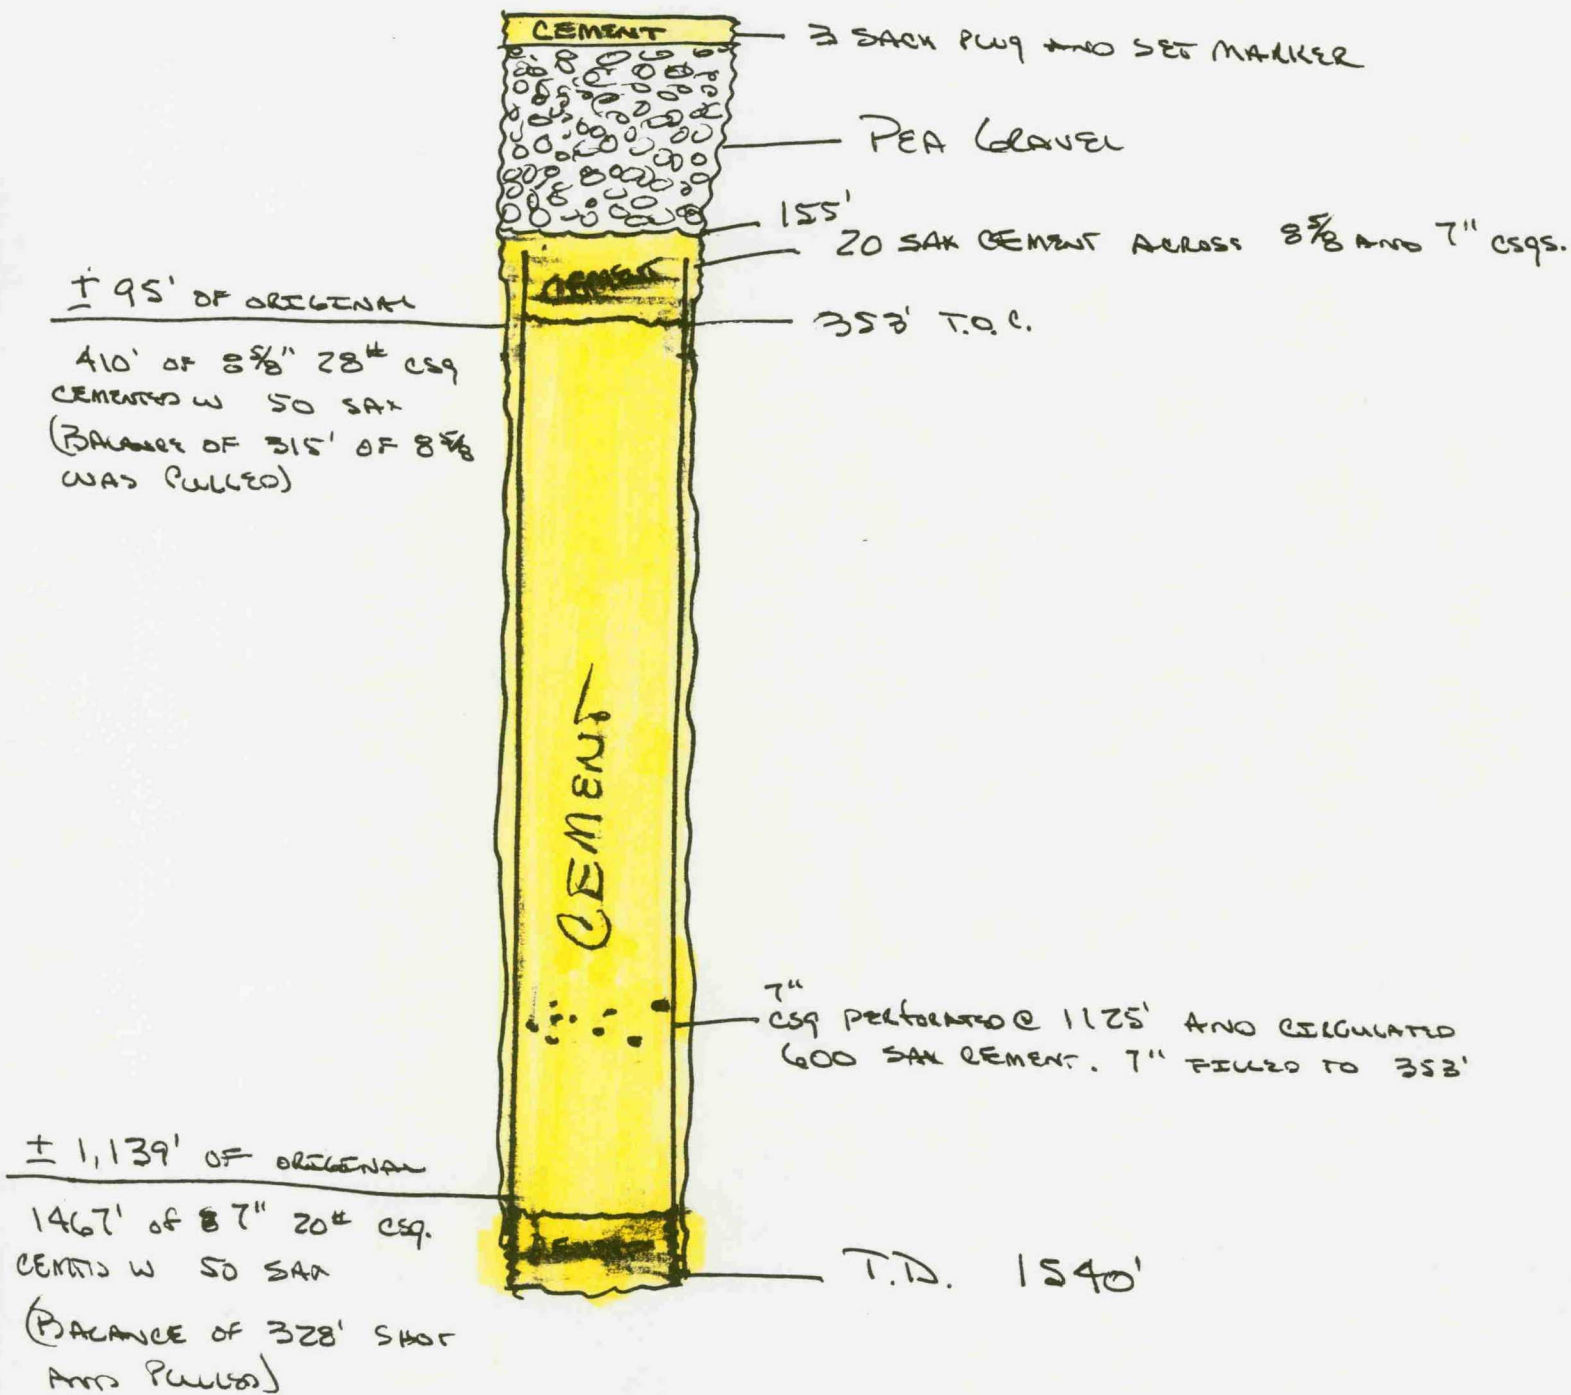 CEMENT
3 SACK PLUG AND SET MARKER
PEA GRAVEL
155'
20 SAX CEMENT ACROSS 8 5/8 AND 7" CSGS.
CEMENT
353' T.O.C.
± 95' OF ORIGINAL
410' OF 8 5/8" 28# CSG
CEMENTED W 50 SAX
(BALANCE OF 315' OF 8 5/8
WAS PULLED)
CEMENT
7"
CSG PERFORATED @ 1125' AND CIRCULATED
600 SAX CEMENT. 7" FILLED TO 353'
± 1,139' OF ORIGINAL
1467' of 7" 20# CSG.
CEMTD W 50 SAX
(BALANCE OF 328' SHOT
AND PULLED)
CEMENT
T.D. 1540'